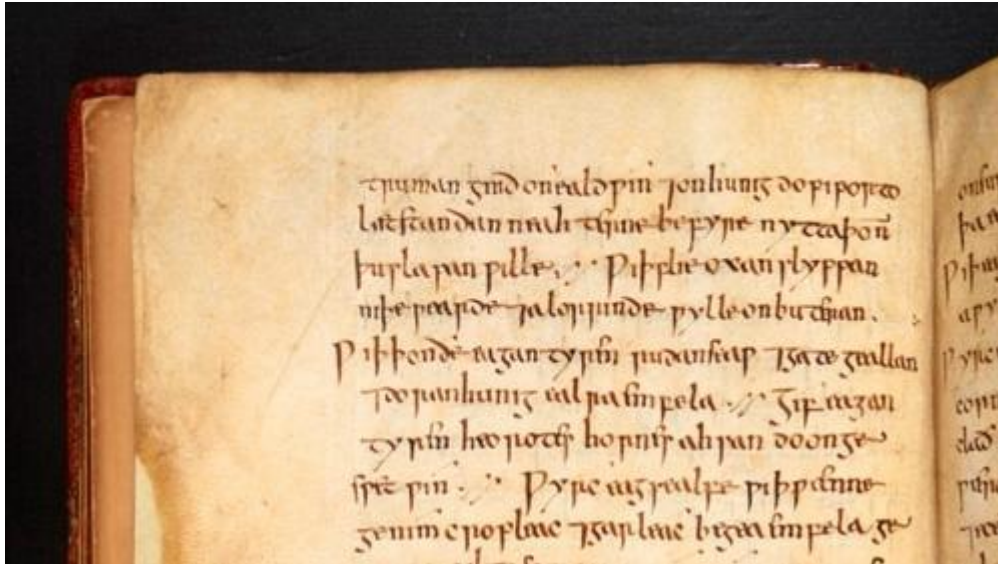 truman gnid on eald ƿin ⁊ on hunig do pipor to
læt standan neahterne be fyre nytta þoñ
þu slapan ƿille. Ƿiþ flie oxan slyppan
niþeƿearde ⁊ alorrinde ƿylle on buteran.
Ƿiþ þonðe eagan tyren rudan seaƿ ⁊ gate geallan
⁊ doran hunig ealra emfela. Gif eagan
tyren heorotes hornes ahsan do on ge
sƿet ƿin. Ƿyrc eagsealfe ƿiþ ƿænne
genim cropleac ⁊ garleac begea emfela ge